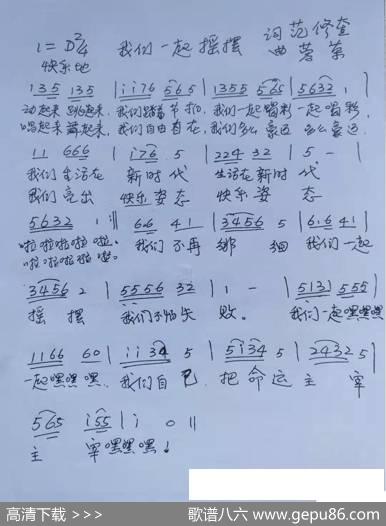 1=D 2/4 我们一起摇摆 词 范修奎
快乐地 曲 蒋草
135 135 | i i 7 6 5 6 5 | 1355 565 | 5632 1 |
动起来 跳起来, 我们踏着节拍, 我们一起喝彩 一起喝彩,
唱起来 舞起来, 我们自由自在, 我们多么豪迈 多么豪迈.
11 666 | i76 5 | 224 32 | 5 - |
我们生活在 新时代 生活在新时代
我们亮出 快乐姿态 快乐姿态
5632 1 :|| 66 41 | 3456 5 | 6 i 6 41 |
啦啦啦啦啦. 我们不再 绑捆 我们一起
啦啦啦啦啦.
3456 2 | 5556 32 | 1 - | 5131 555 |
摇摆 我们不怕失败. 我们一起嘿嘿嘿
1166 60 | i i 34 5 | 5 i 34 5 | 2432 5 |
一起嘿嘿嘿, 我们自己 把命运主宰
565 i55 | i 0 ||
主宰嘿嘿嘿!
高清下载 >>> 歌谱八六 www.gepu86.com